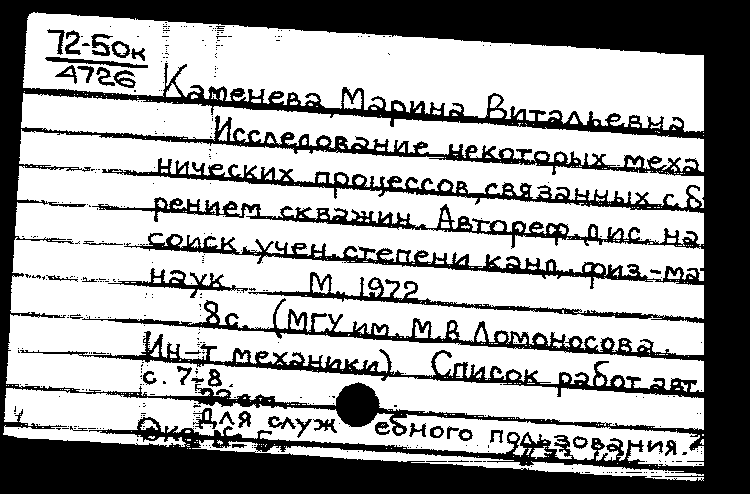 72-Бок
4726
Каменева Марина Витальевна
Исследование некоторых меха
нических процессов, связанных с б
рением скважин. Автореф. дис. на
соиск. учен. степени канд. физ.-мат
наук. М., 1972.
8с. (МГУ им. М.В Ломоносова.
Ин-т механики). Список работ авт
с. 7-8.
22 см
для служебного пользования.
Экз №